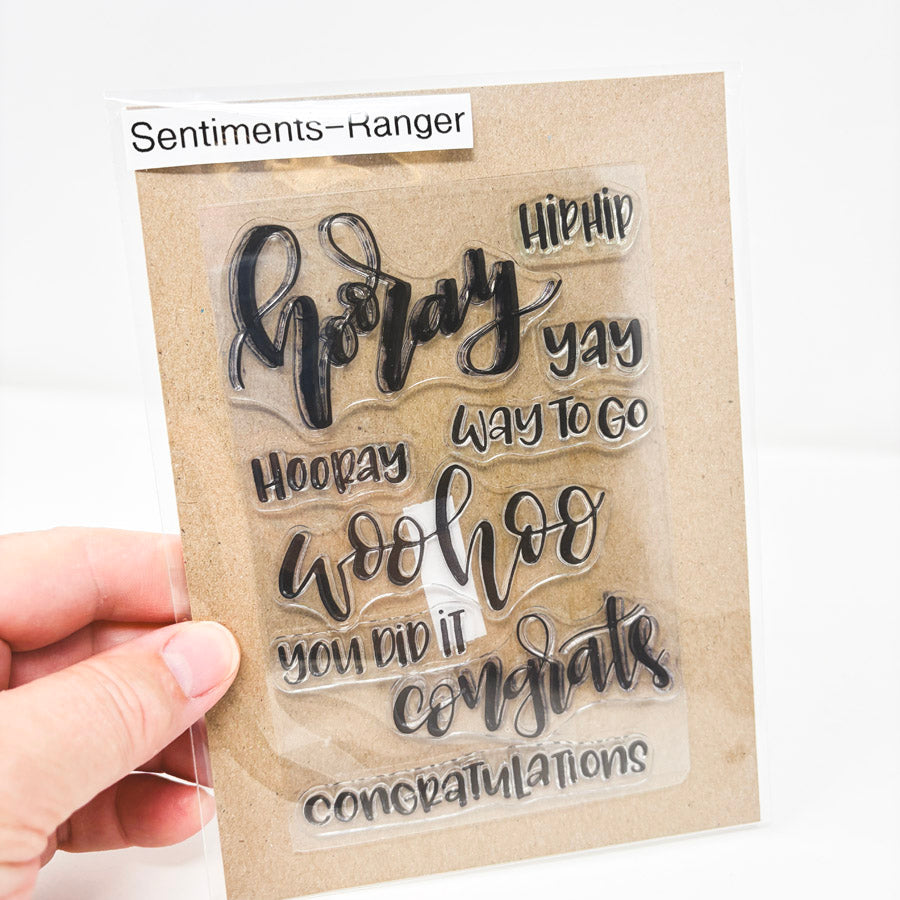 Sentiments-Ranger
HiPHiP
hooray
yay
WAY TO GO
HOORAY
woohoo
YOU DiD iT
congrats
CONGRATULATiONS